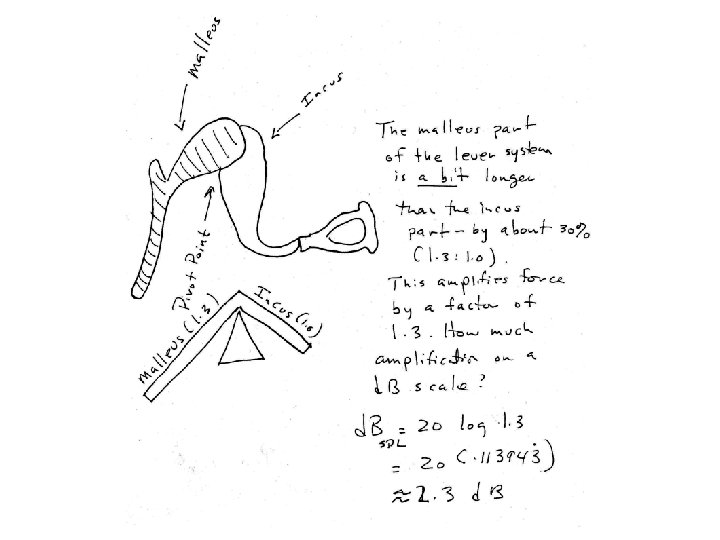 Malleus
Incus
Pivot Point
Malleus (1.3)
Incus (1.0)
The malleus part
of the lever system
is a bit longer
than the incus
part - by about 30%
(1.3:1.0).
This amplifies force
by a factor of
1.3. How much
amplification on a
dB scale?
dB SPL = 20 log 1.3
= 20 (.113943)
≈ 2.3 dB